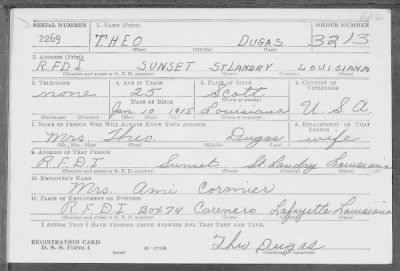 SERIAL NUMBER 1. NAME (Print) ORDER NUMBER
2269 THEO DUGAS 3213
(First) (Middle) (Last)
2. ADDRESS (Print)
R.F.D.1 SUNSET ST LANDRY LOUISIANA
(Number and street or R. F. D. number) (Town) (County) (State)
3. TELEPHONE 4. AGE IN YEARS 5. PLACE OF BIRTH 6. COUNTRY OF CITIZENSHIP
none 25 Scott
DATE OF BIRTH (Town or county)
Jan 10 1915 Louisiana U.S.A.
(Exchange) (Number) (Mo.) (Day) (Yr.) (State or country)
7. NAME OF PERSON WHO WILL ALWAYS KNOW YOUR ADDRESS 8. RELATIONSHIP OF THAT PERSON
Mrs. Theo Dugas wife
(Mr., Mrs., Miss) (First) (Middle) (Last)
9. ADDRESS OF THAT PERSON
R.F.D.1 Sunset St Landry Louisiana
(Number and street or R. F. D. number) (Town) (County) (State)
10. EMPLOYER'S NAME
Mrs. Ami Cormier
11. PLACE OF EMPLOYMENT OR BUSINESS
R.F.D.1 Box 74 Carencro Lafayette Louisiana
(Number and street or R. F. D. number) (Town) (County) (State)
I AFFIRM THAT I HAVE VERIFIED ABOVE ANSWERS AND THAT THEY ARE TRUE.
REGISTRATION CARD
D. S. S. Form 1 16—17105 Theo Dugas
(Registrant's signature)